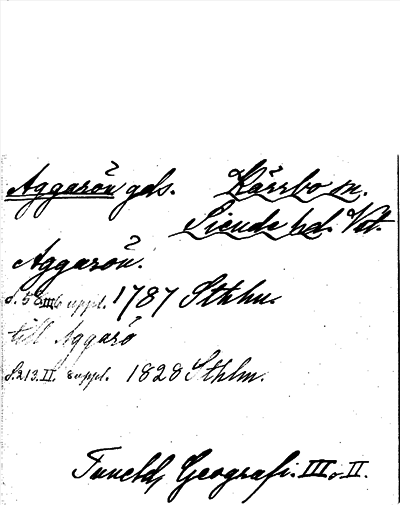 Aggarön gds. Kärrbo sn.
Siende hd. Vst.
Aggarön.
s. 58 III uppl. 1787 Sthlm.
till Aggarö
s. 213. II. uppl. 1828 Sthlm.
Tuneld, Geografi. III o. II.